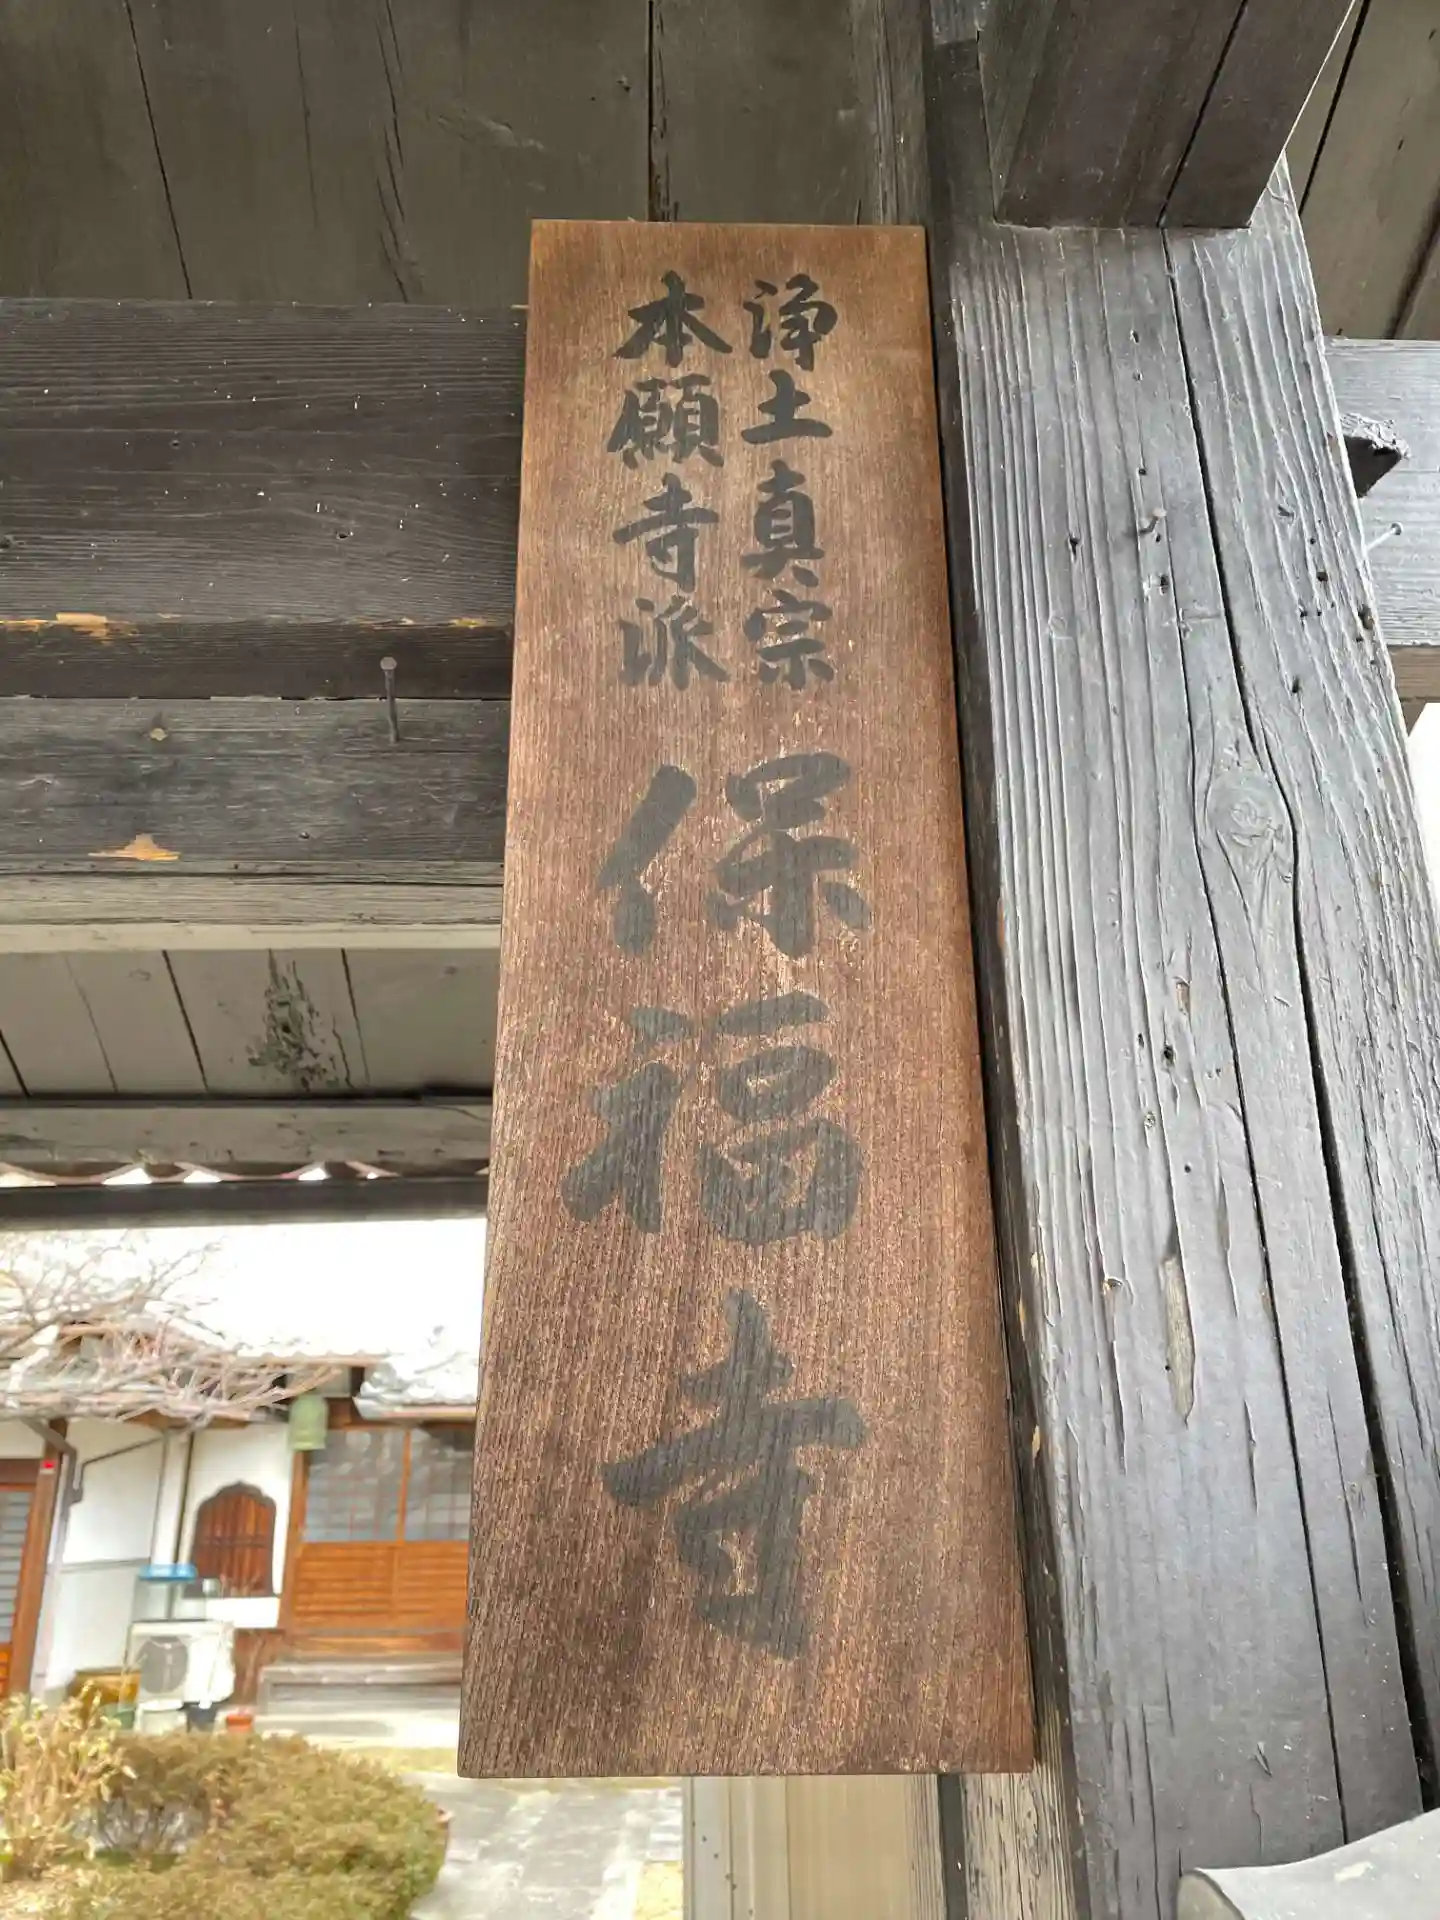 浄土真宗
本願寺派
保福寺